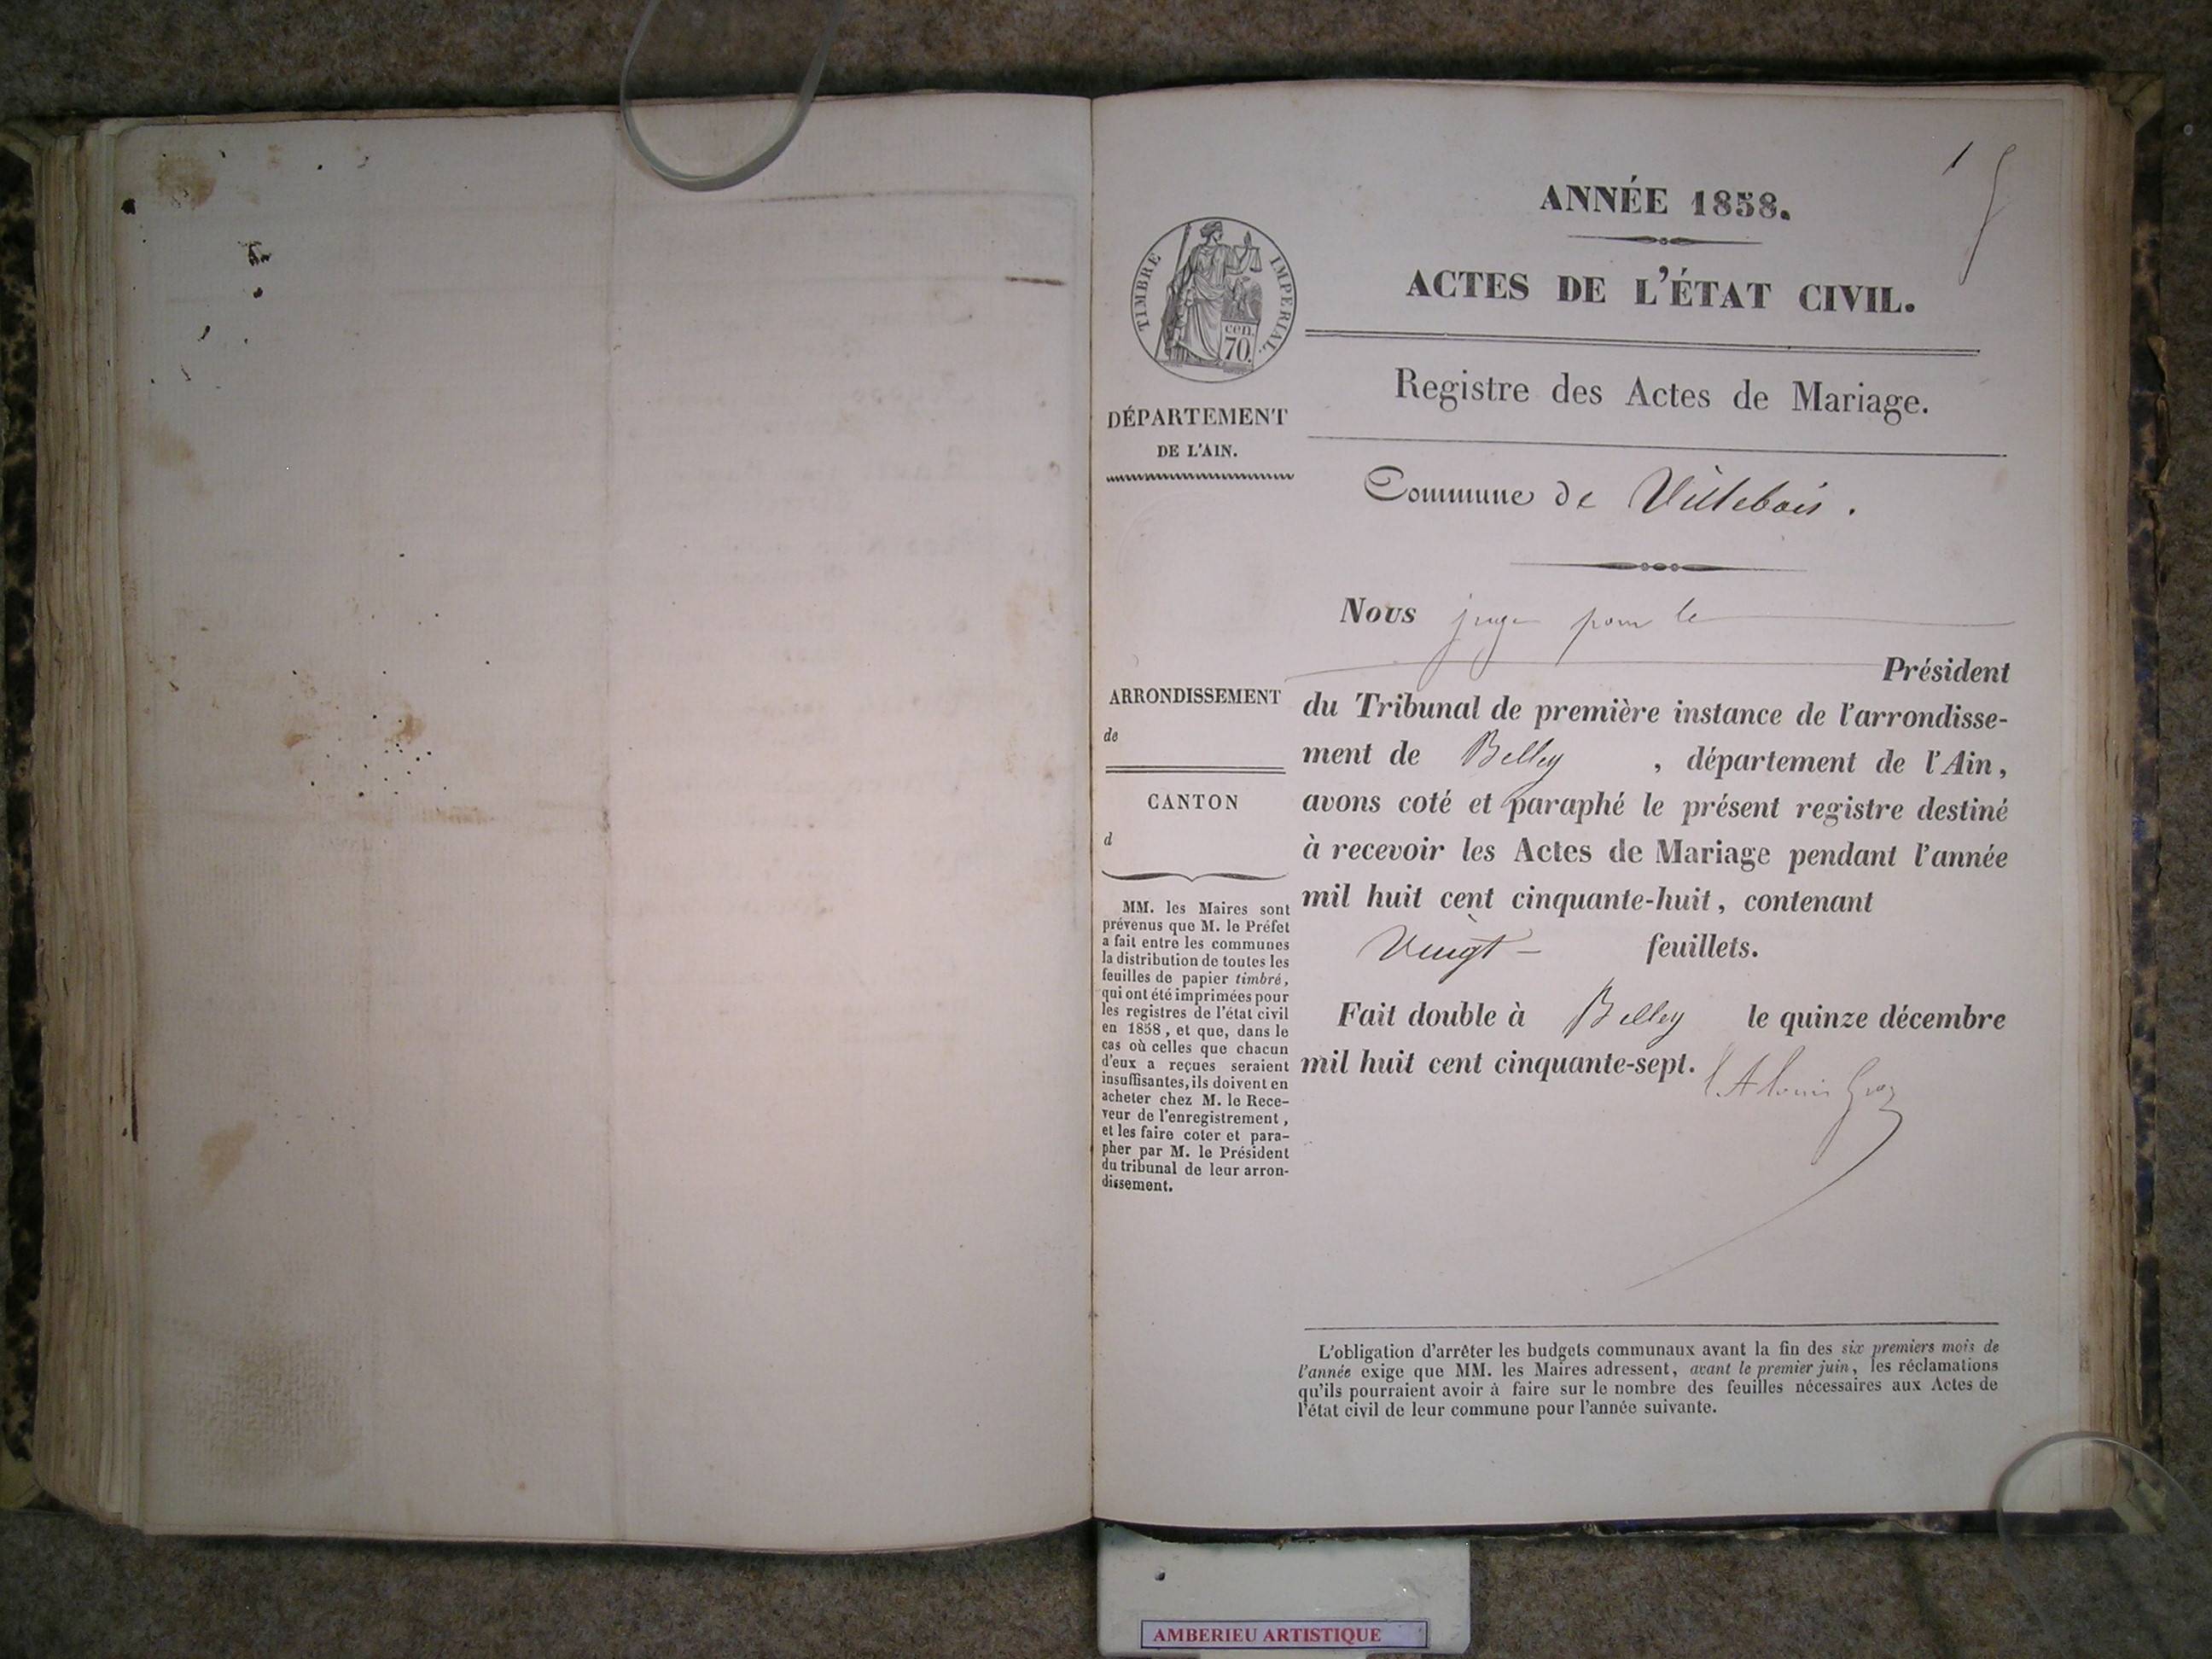 1
ANNÉE 1858.
ACTES DE L'ÉTAT CIVIL.
TIMBRE IMPERIAL.
cen.
70.
Registre des Actes de Mariage.
DÉPARTEMENT
DE L'AIN.
Commune de Villebois.
Nous juge pour le
Président
ARRONDISSEMENT
de
CANTON
d
du Tribunal de première instance de l'arrondisse-
ment de Belley , département de l'Ain,
avons coté et paraphé le présent registre destiné
à recevoir les Actes de Mariage pendant l'année
mil huit cent cinquante-huit, contenant
Vingt feuillets.
Fait double à Belley le quinze décembre
mil huit cent cinquante-sept.
MM. les Maires sont
prévenus que M. le Préfet
a fait entre les communes
la distribution de toutes les
feuilles de papier timbré,
qui ont été imprimées pour
les registres de l'état civil
en 1858, et que, dans le
cas où celles que chacun
d'eux a reçues seraient
insuffisantes, ils doivent en
acheter chez M. le Rece-
veur de l'enregistrement,
et les faire coter et para-
pher par M. le Président
du tribunal de leur arron-
dissement.
L'obligation d'arrêter les budgets communaux avant la fin des six premiers mois de
l'année exige que MM. les Maires adressent, avant le premier juin, les réclamations
qu'ils pourraient avoir à faire sur le nombre des feuilles nécessaires aux Actes de
l'état civil de leur commune pour l'année suivante.
AMBERIEU ARTISTIQUE